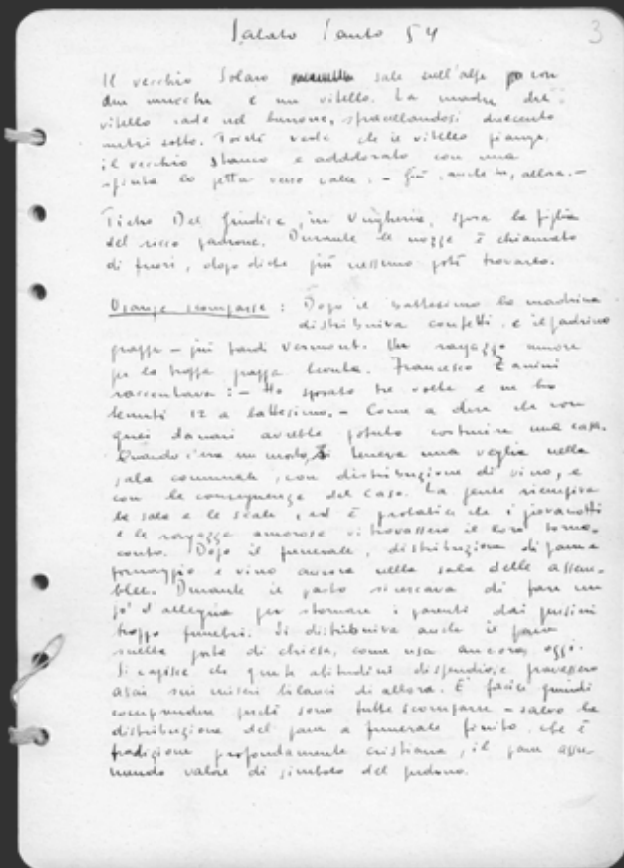 Sabato Santo 54
3
Il vecchio Solaro sale sull'alpe con
due mucche e un vitello. La madre del
vitello cade nel burrone, sfracellandosi duecento
metri sotto. Poiché vede che il vitello piange
il vecchio stanco e addolorato con una
spinta lo getta verso valle. - Giù anche tu, allora. -
Ticho Del Giudice, in Ungheria, sposa la figlia
del ricco padrone. Durante le nozze è chiamato
di fuori, dopodiché più nessuno poté trovarlo.
Usanze scomparse : Dopo il battesimo la madrina
distribuiva confetti e il padrino
grappa - più tardi Vermont. Un ragazzo muore
per la troppa grappa bevuta. Francesco Zanini
raccontava : - Ho sposato tre volte e ne ho
tenuti 12 a battesimo. - Come a dire che con
quei danari avrebbe potuto costruire una casa.
Quando c'era un morto, si teneva una veglia nella
sala comunale, con distribuzione di vino, e
con le conseguenze del caso. La gente riempiva
la sala e le scale, ed è probabile che i giovanotti
e le ragazze amorose vi trovassero il loro torna-
conto. Dopo il funerale, distribuzione di pane
formaggio e vino ancora nella sala delle assem-
blee. Durante il pasto si cercava di fare un
po' d'allegria per stornare i parenti dai pensieri
troppo funebri. Si distribuiva anche il pane
sulla porta di chiesa, come usa ancora oggi.
Si capisce che queste abitudini dispendiose pesavano
assai sui miseri bilanci di allora. È facile quindi
comprendere perché sono tutte scomparse - salvo la
distribuzione del pane a funerale finito, che è
tradizione profondamente cristiana, il pane assu-
mendo valore di simbolo del perdono.